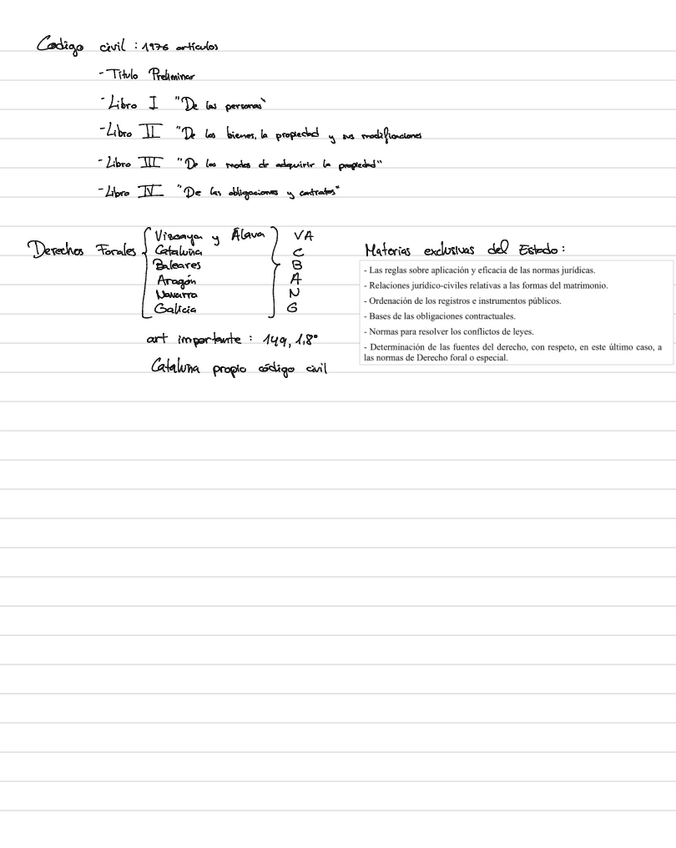 Codigo civil : 1976 artículos
- Título Preliminar
- Libro I "De las personas"
- Libro II "De los bienes, la propiedad y sus modificaciones
- Libro III "De los modos de adquirir la propiedad"
- Libro IV "De las obligaciones y contratos"
Derechos Forales
Vizcaya y Álava VA
Cataluña C
Baleares B
Aragón A
Navarra N
Galicia G
art importante : 149, 1.8º
Cataluña propio código civil
Materias exclusivas del Estado :
- Las reglas sobre aplicación y eficacia de las normas jurídicas.
- Relaciones jurídico-civiles relativas a las formas del matrimonio.
- Ordenación de los registros e instrumentos públicos.
- Bases de las obligaciones contractuales.
- Normas para resolver los conflictos de leyes.
- Determinación de las fuentes del derecho, con respeto, en este último caso, a
las normas de Derecho foral o especial.